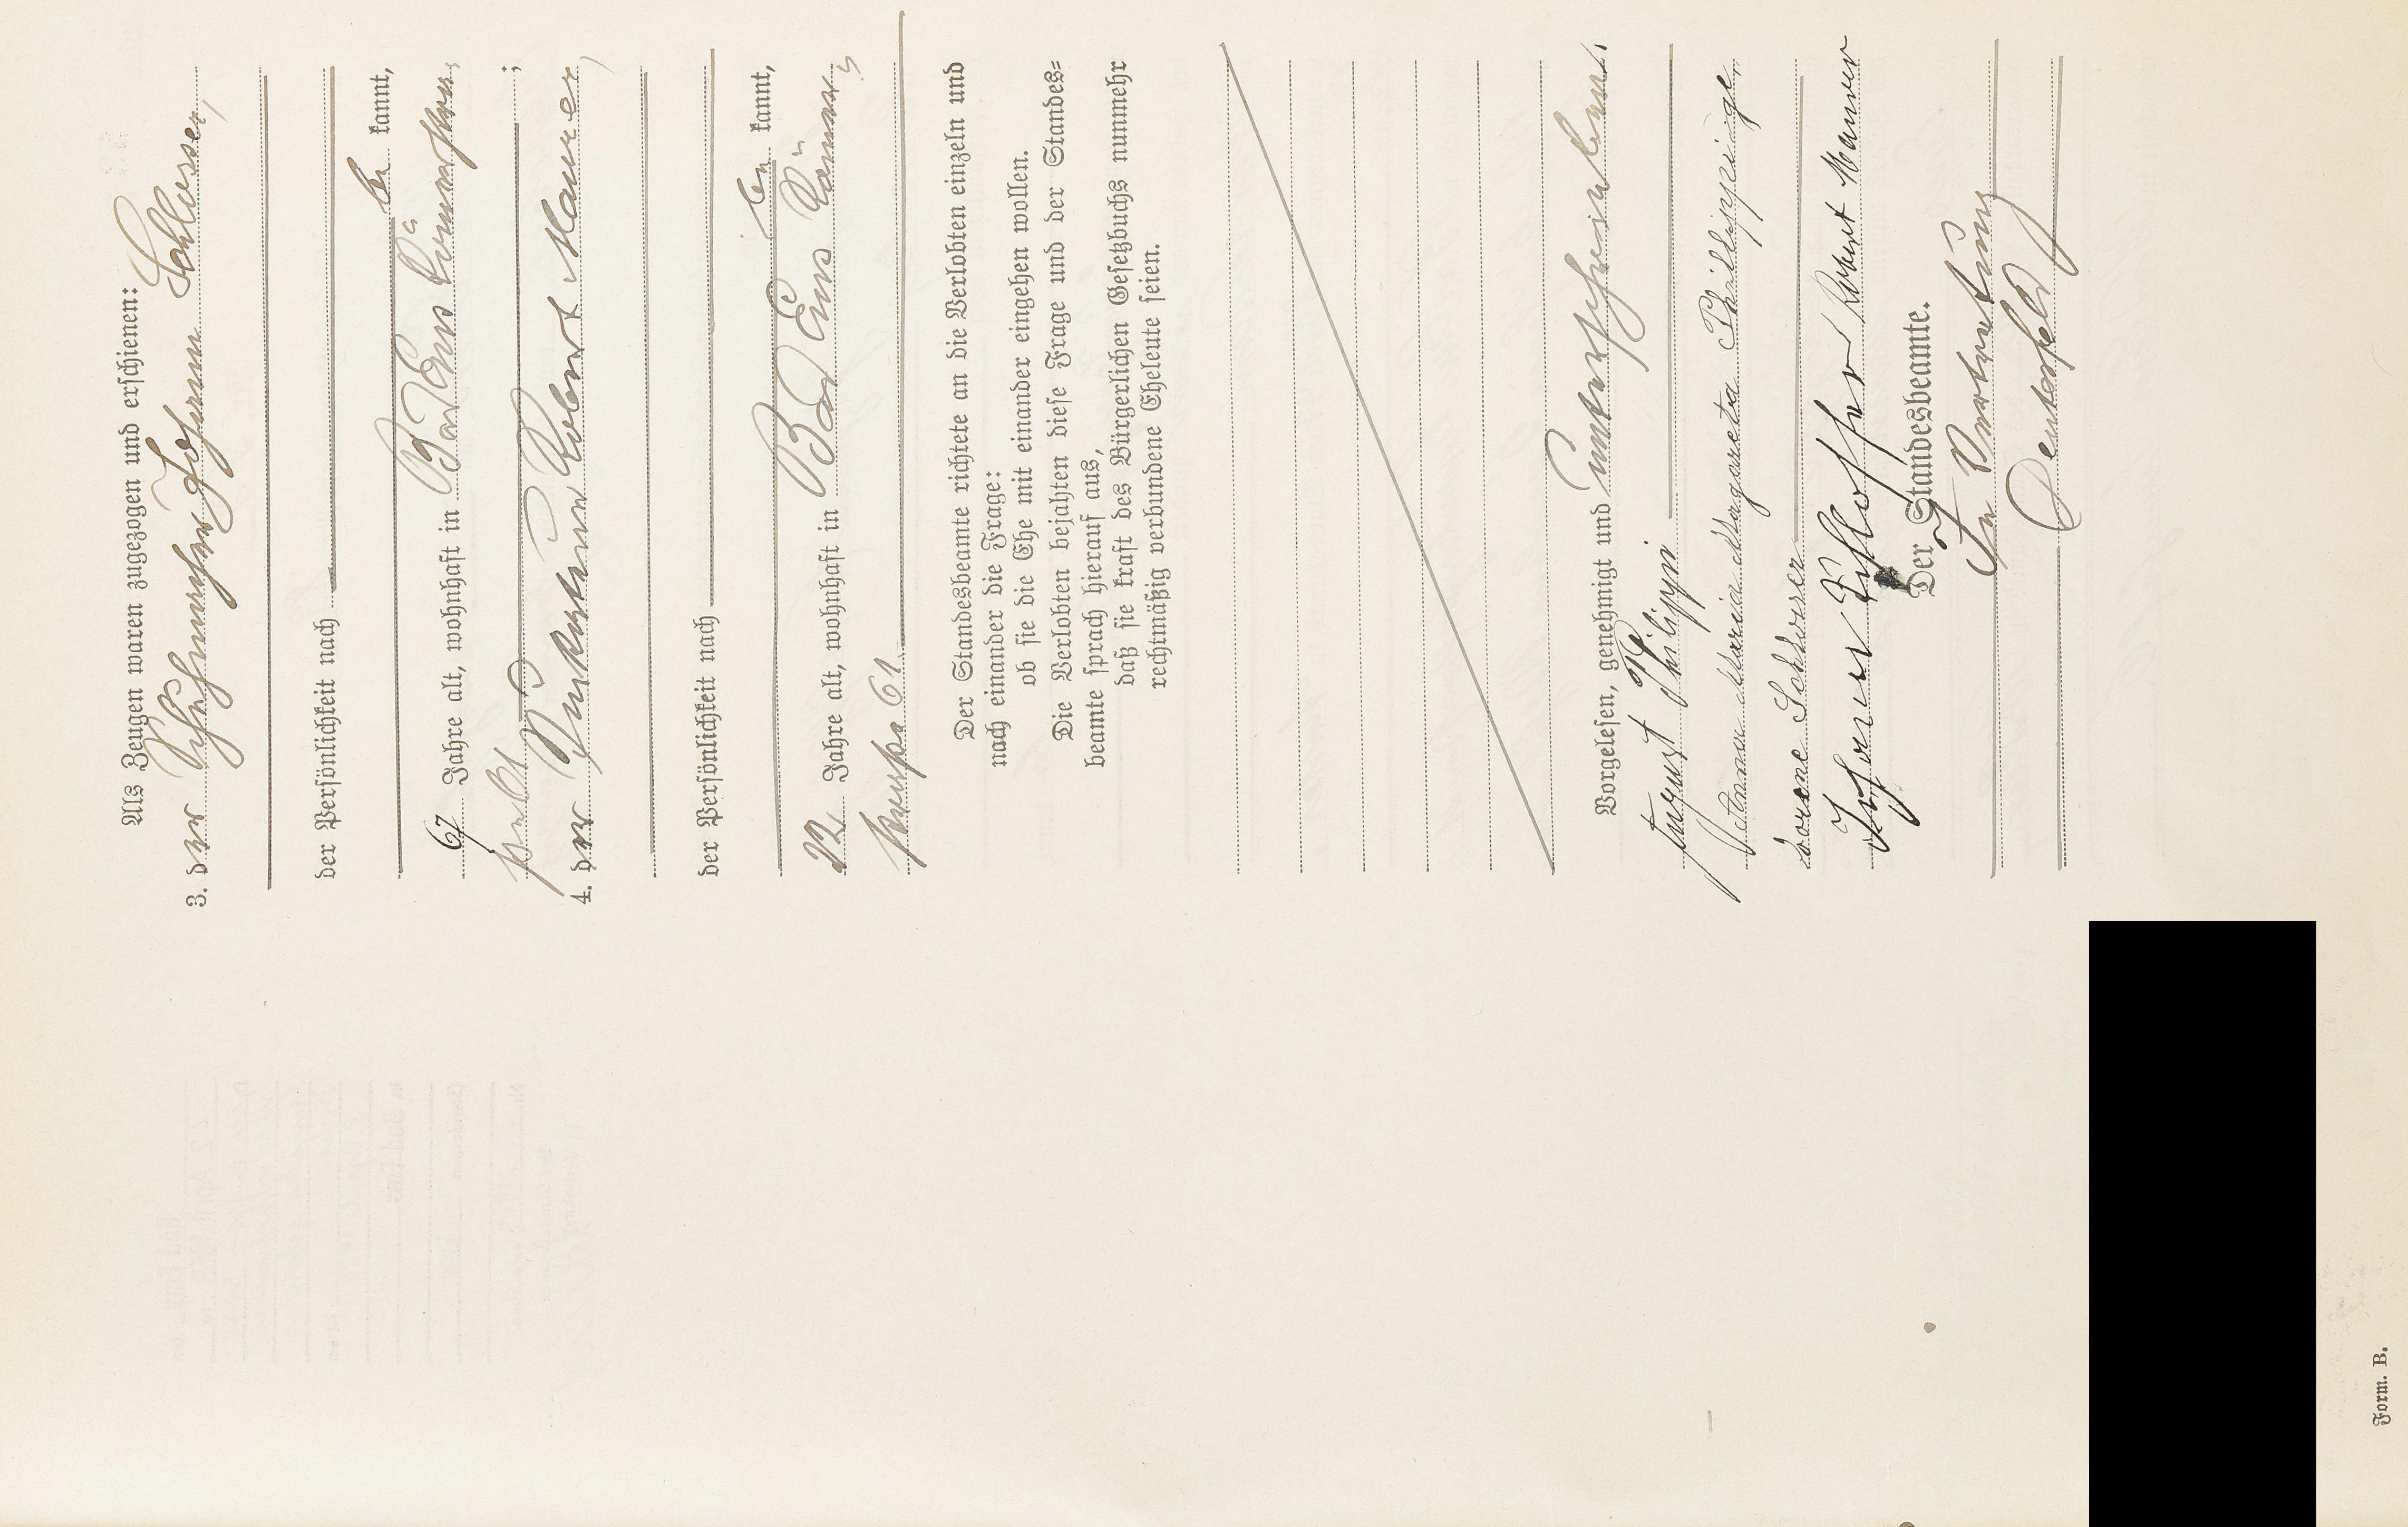 Als Zeugen waren zugezogen und erschienen:
3. der Schuhmacher Johann Schlosser,
der Persönlichkeit nach
be kannt,
67 Jahre alt, wohnhaft in Bad Ems Römerstra-
ße 61 ;
4. der Robert Maurer,
der Persönlichkeit nach
be kannt,
22 Jahre alt, wohnhaft in Bad Ems Römer-
straße 61.
Der Standesbeamte richtete an die Verlobten einzeln und
nach einander die Frage:
ob sie die Ehe mit einander eingehen wollen.
Die Verlobten bejahten diese Frage und der Standes=
beamte sprach hierauf aus,
daß sie kraft des Bürgerlichen Gesetzbuchs nunmehr
rechtmäßig verbundene Eheleute seien.
Vorgelesen, genehmigt und unterschrieben.
August Philippi
Anna Maria Margareta Philippi ge-
borene Schlosser
Johann Schlosser Robert Maurer
Der Standesbeamte.
In Vertretung
Form. B.